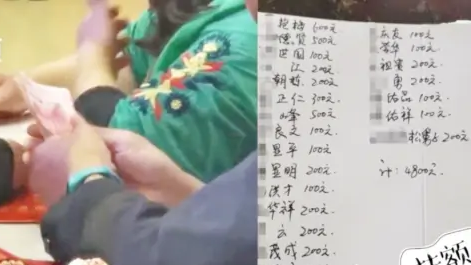 600元
德贤 500元
世国 100元
江 200元
朝栋 200元
正仁 300元
峯 500元
良文 100元
显平 100元
显明 200元
洪才 100元
华祥 200元
云 200元
茂成 200元
庆友 100元
荣华 100元
祖寅 200元
勇 200元
佑品 100元
佑祥 100元
松男子 200元
计：4800元